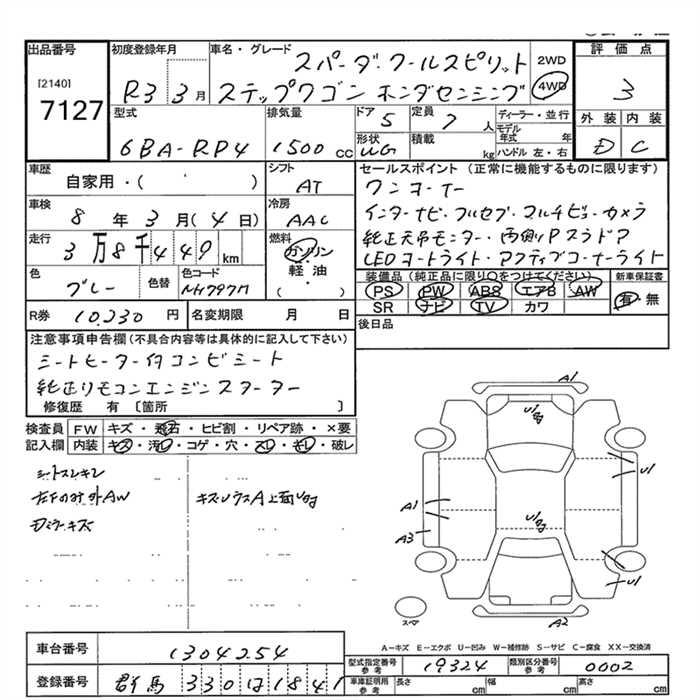 出品番号
[2140]
7127
初度登録年月
R3 3月
車名・グレード
スパーダ・クールスピリット
ステップワゴン ホンダセンシング
2WD
4WD
評価点
3
外装 内装
D C
型式
6BA-RP4
排気量
1500 cc
ドア
5
定員
7 人
形状
WG
積載
kg
ディーラー・並行
モデル年式 年
ハンドル 左・右
車歴
自家用・( )
シフト
AT
車検
8年 3月(4日)
冷房
AAC
走行
3万8千449 km
燃料
ガソリン
軽油
( )
色
ブルー
色替
色コード
NH797M
R券 10,230円
名変期限 月 日
セールスポイント(正常に機能するものに限ります)
ワンオーナー
インターナビ・フルセグ・マルチビューカメラ
純正天吊モニター・両側Pスラドア
LEDオートライト・アクティブコーナーライト
装備品(純正品に限り○をつけてください)
PS PW ABS エアB AW
SR ナビ TV カワ
新車保証書
有・無
後日品
注意事項申告欄(不具合内容等は具体的に記入して下さい)
シートヒーター付コンビシート
純正リモコンエンジンスターター
修復歴 有 〔箇所 〕
検査員記入欄
FW キズ・飛石・ヒビ割・リペア跡・×要
内装 キズ・汚レ・コゲ・穴・スレ・キレ・破レ
シートスレキレ
キズUウスA 上面U
A1
U
U1
A1
A3
U
U1
A2
スペア
A-キズ E-エクボ U-凹み W-補修跡 S-サビ C-腐食 XX-交換済
車台番号 1304254
登録番号 群馬 330 は 1841
型式指定番号 参考 19324
類別区分番号 参考 0002
車庫証明用 参考 長さ cm 幅 cm 高さ cm